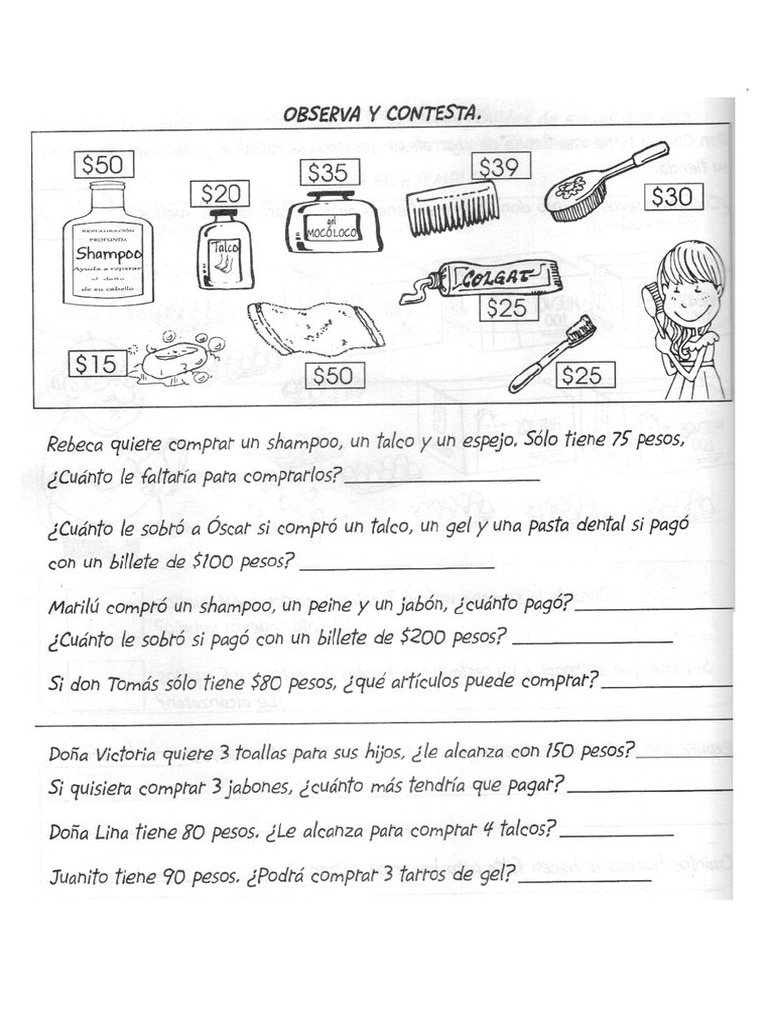 OBSERVA Y CONTESTA.
$50
$20
$35
$39
$30
RESTAURACIÓN
PROFUNDA
Shampoo
Ayuda a reparar
el daño
de su cabello
Talco
gel
MOCOLOCO
COLGAT
$25
$15
$50
$25
Rebeca quiere comprar un shampoo, un talco y un espejo. Sólo tiene 75 pesos,
¿Cuánto le faltaría para comprarlos?
¿Cuánto le sobró a Óscar si compró un talco, un gel y una pasta dental si pagó
con un billete de $100 pesos?
Marilú compró un shampoo, un peine y un jabón, ¿cuánto pagó?
¿Cuánto le sobró si pagó con un billete de $200 pesos?
Si don Tomás sólo tiene $80 pesos, ¿qué artículos puede comprar?
Doña Victoria quiere 3 toallas para sus hijos, ¿le alcanza con 150 pesos?
Si quisiera comprar 3 jabones, ¿cuánto más tendría que pagar?
Doña Lina tiene 80 pesos. ¿Le alcanza para comprar 4 talcos?
Juanito tiene 90 pesos. ¿Podrá comprar 3 tarros de gel?